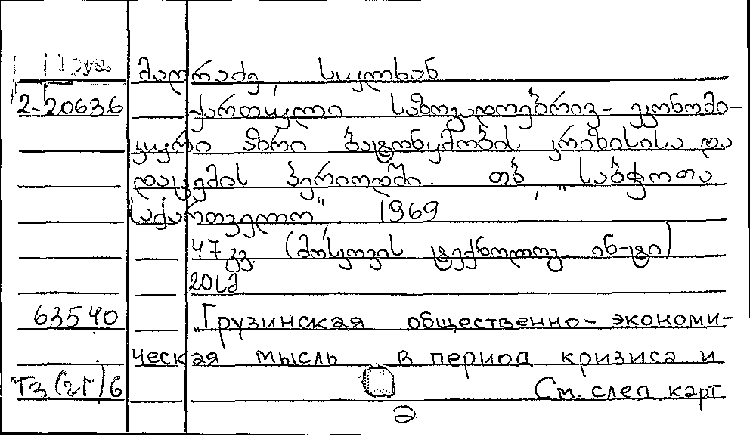 მაღრაძე, სულხან
2-20636 ქართული საზოგადოებრივ-ეკონომი-
კური აზრი ბატონყმობის კრიზისისა და
დაცემის პერიოდში. თბ., „საბჭოთა
საქართველო" 1969
47 გვ. (მოსკოვის ტექნოლოგ. ინ-ტი)
63540 „Грузинская общественно-экономи-
ческая мысль в период кризиса и
ТЗ(2Г)6 См. след карт